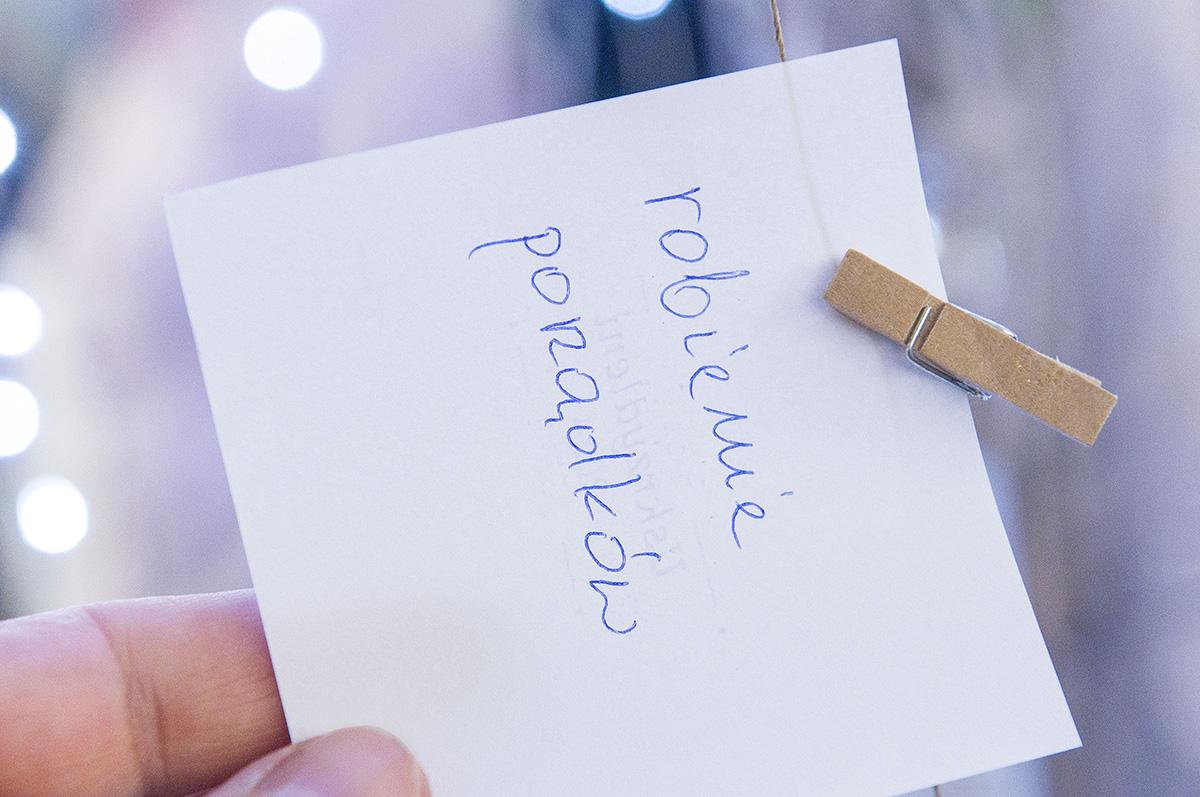 robienie
porządków